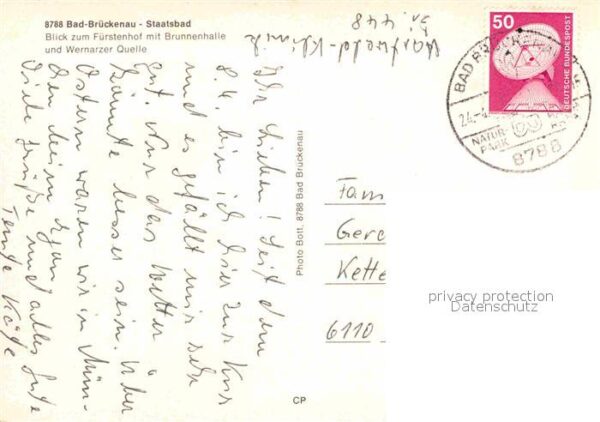 8788 Bad-Brückenau - Staatsbad
Blick zum Fürstenhof mit Brunnenhalle
und Wernarzer Quelle
Hartwald-Klinik
Zi. 448
Ihr Lieben! Seit dem
8.4. bin ich hier zur Kur
und es gefällt mir sehr
gut. Nur das Wetter
könnte besser sein. Über
Ostern waren wir in Mün-
den beim
Viele Grüße und alles Gute
Tante Käthe
Photo Bott, 8788 Bad Brückenau
CP
50
DEUTSCHE BUNDESPOST
BAD BRÜCKENAU
24.
NATUR-
PARK
8788
Fam
Gero
Kette
6110
privacy protection
Datenschutz